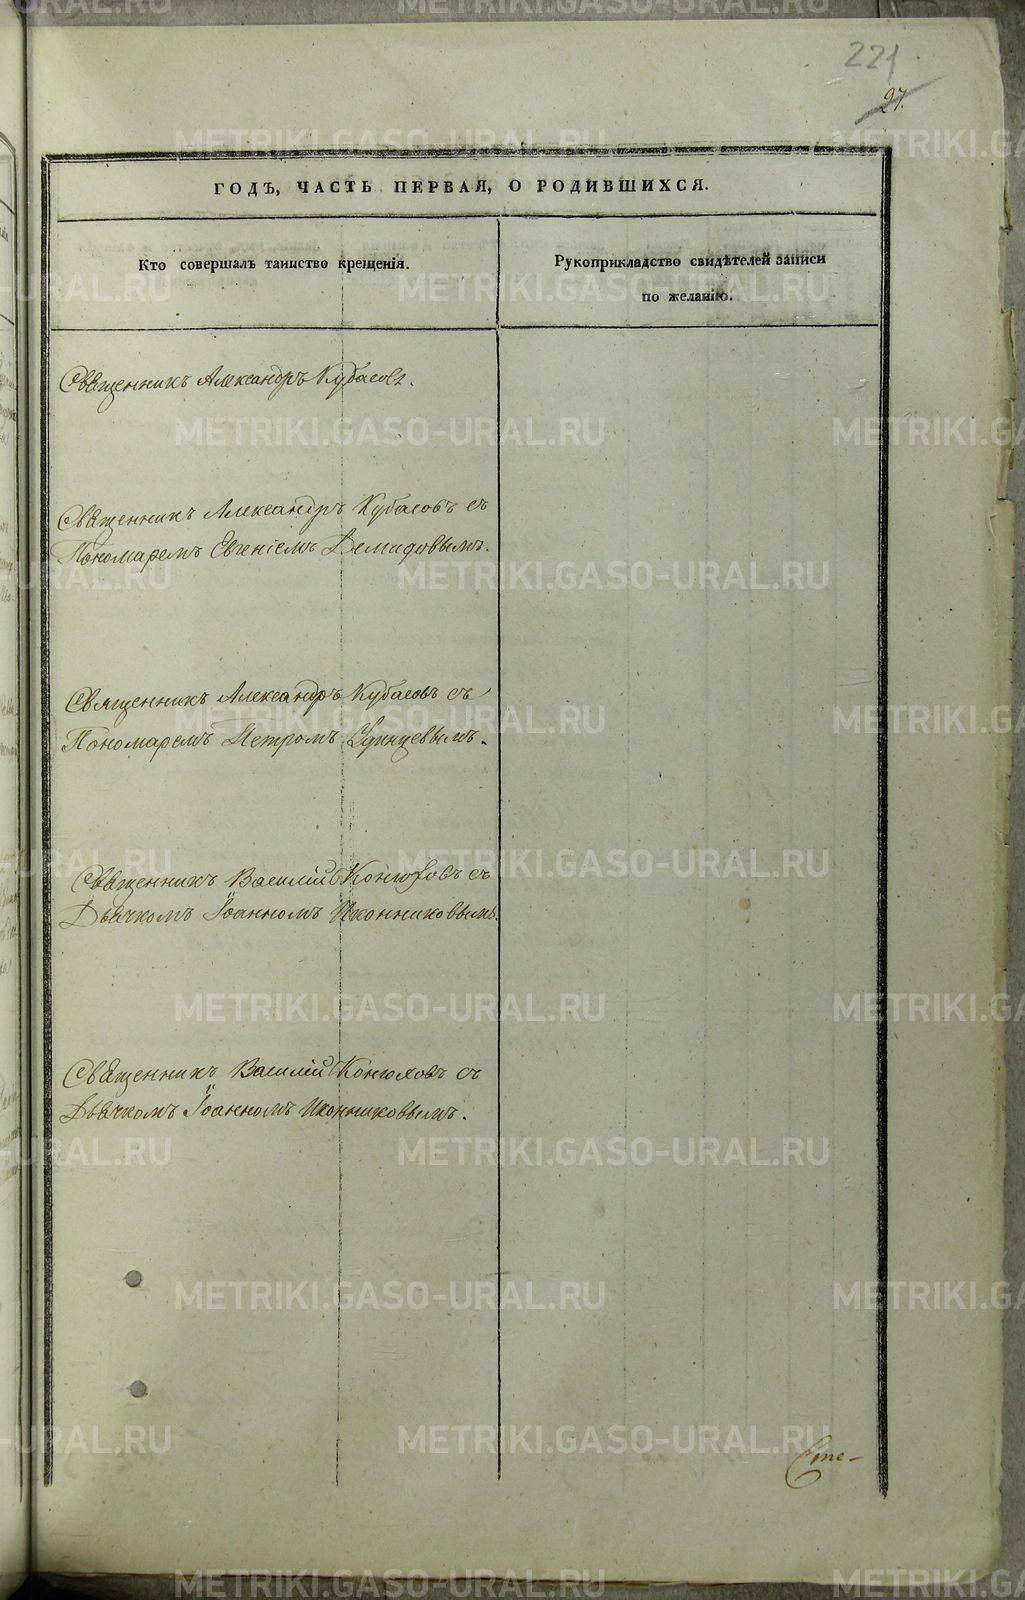 221
27.
ГОДЪ, ЧАСТЬ ПЕРВАЯ, О РОДИВШИХСЯ.
Кто совершалъ таинство крещенія.
Рукоприкладство свидѣтелей записи
по желанію.
Священникъ Александръ Кубасовъ.
Священникъ Александръ Кубасовъ съ
Пономаремъ Евгеніемъ Демидовымъ.
Священникъ Александръ Кубасовъ съ
Пономаремъ Петромъ
Священникъ Василій Конюховъ съ
Дьячкомъ Іоанномъ Иконниковымъ.
Священникъ Василій Конюховъ съ
Дьячкомъ Іоанномъ Иконниковымъ.
METRIKI.GASO-URAL.RU